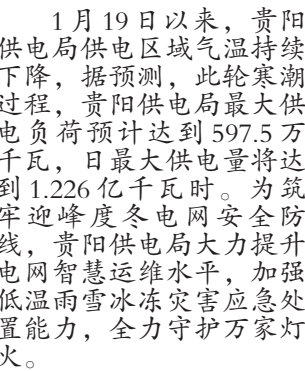 1月19日以来，贵阳
供电局供电区域气温持续
下降，据预测，此轮寒潮
过程，贵阳供电局最大供
电负荷预计达到597.5万
千瓦，日最大供电量将达
到1.226亿千瓦时。为筑
牢迎峰度冬电网安全防
线，贵阳供电局大力提升
电网智慧运维水平，加强
低温雨雪冰冻灾害应急处
置能力，全力守护万家灯
火。